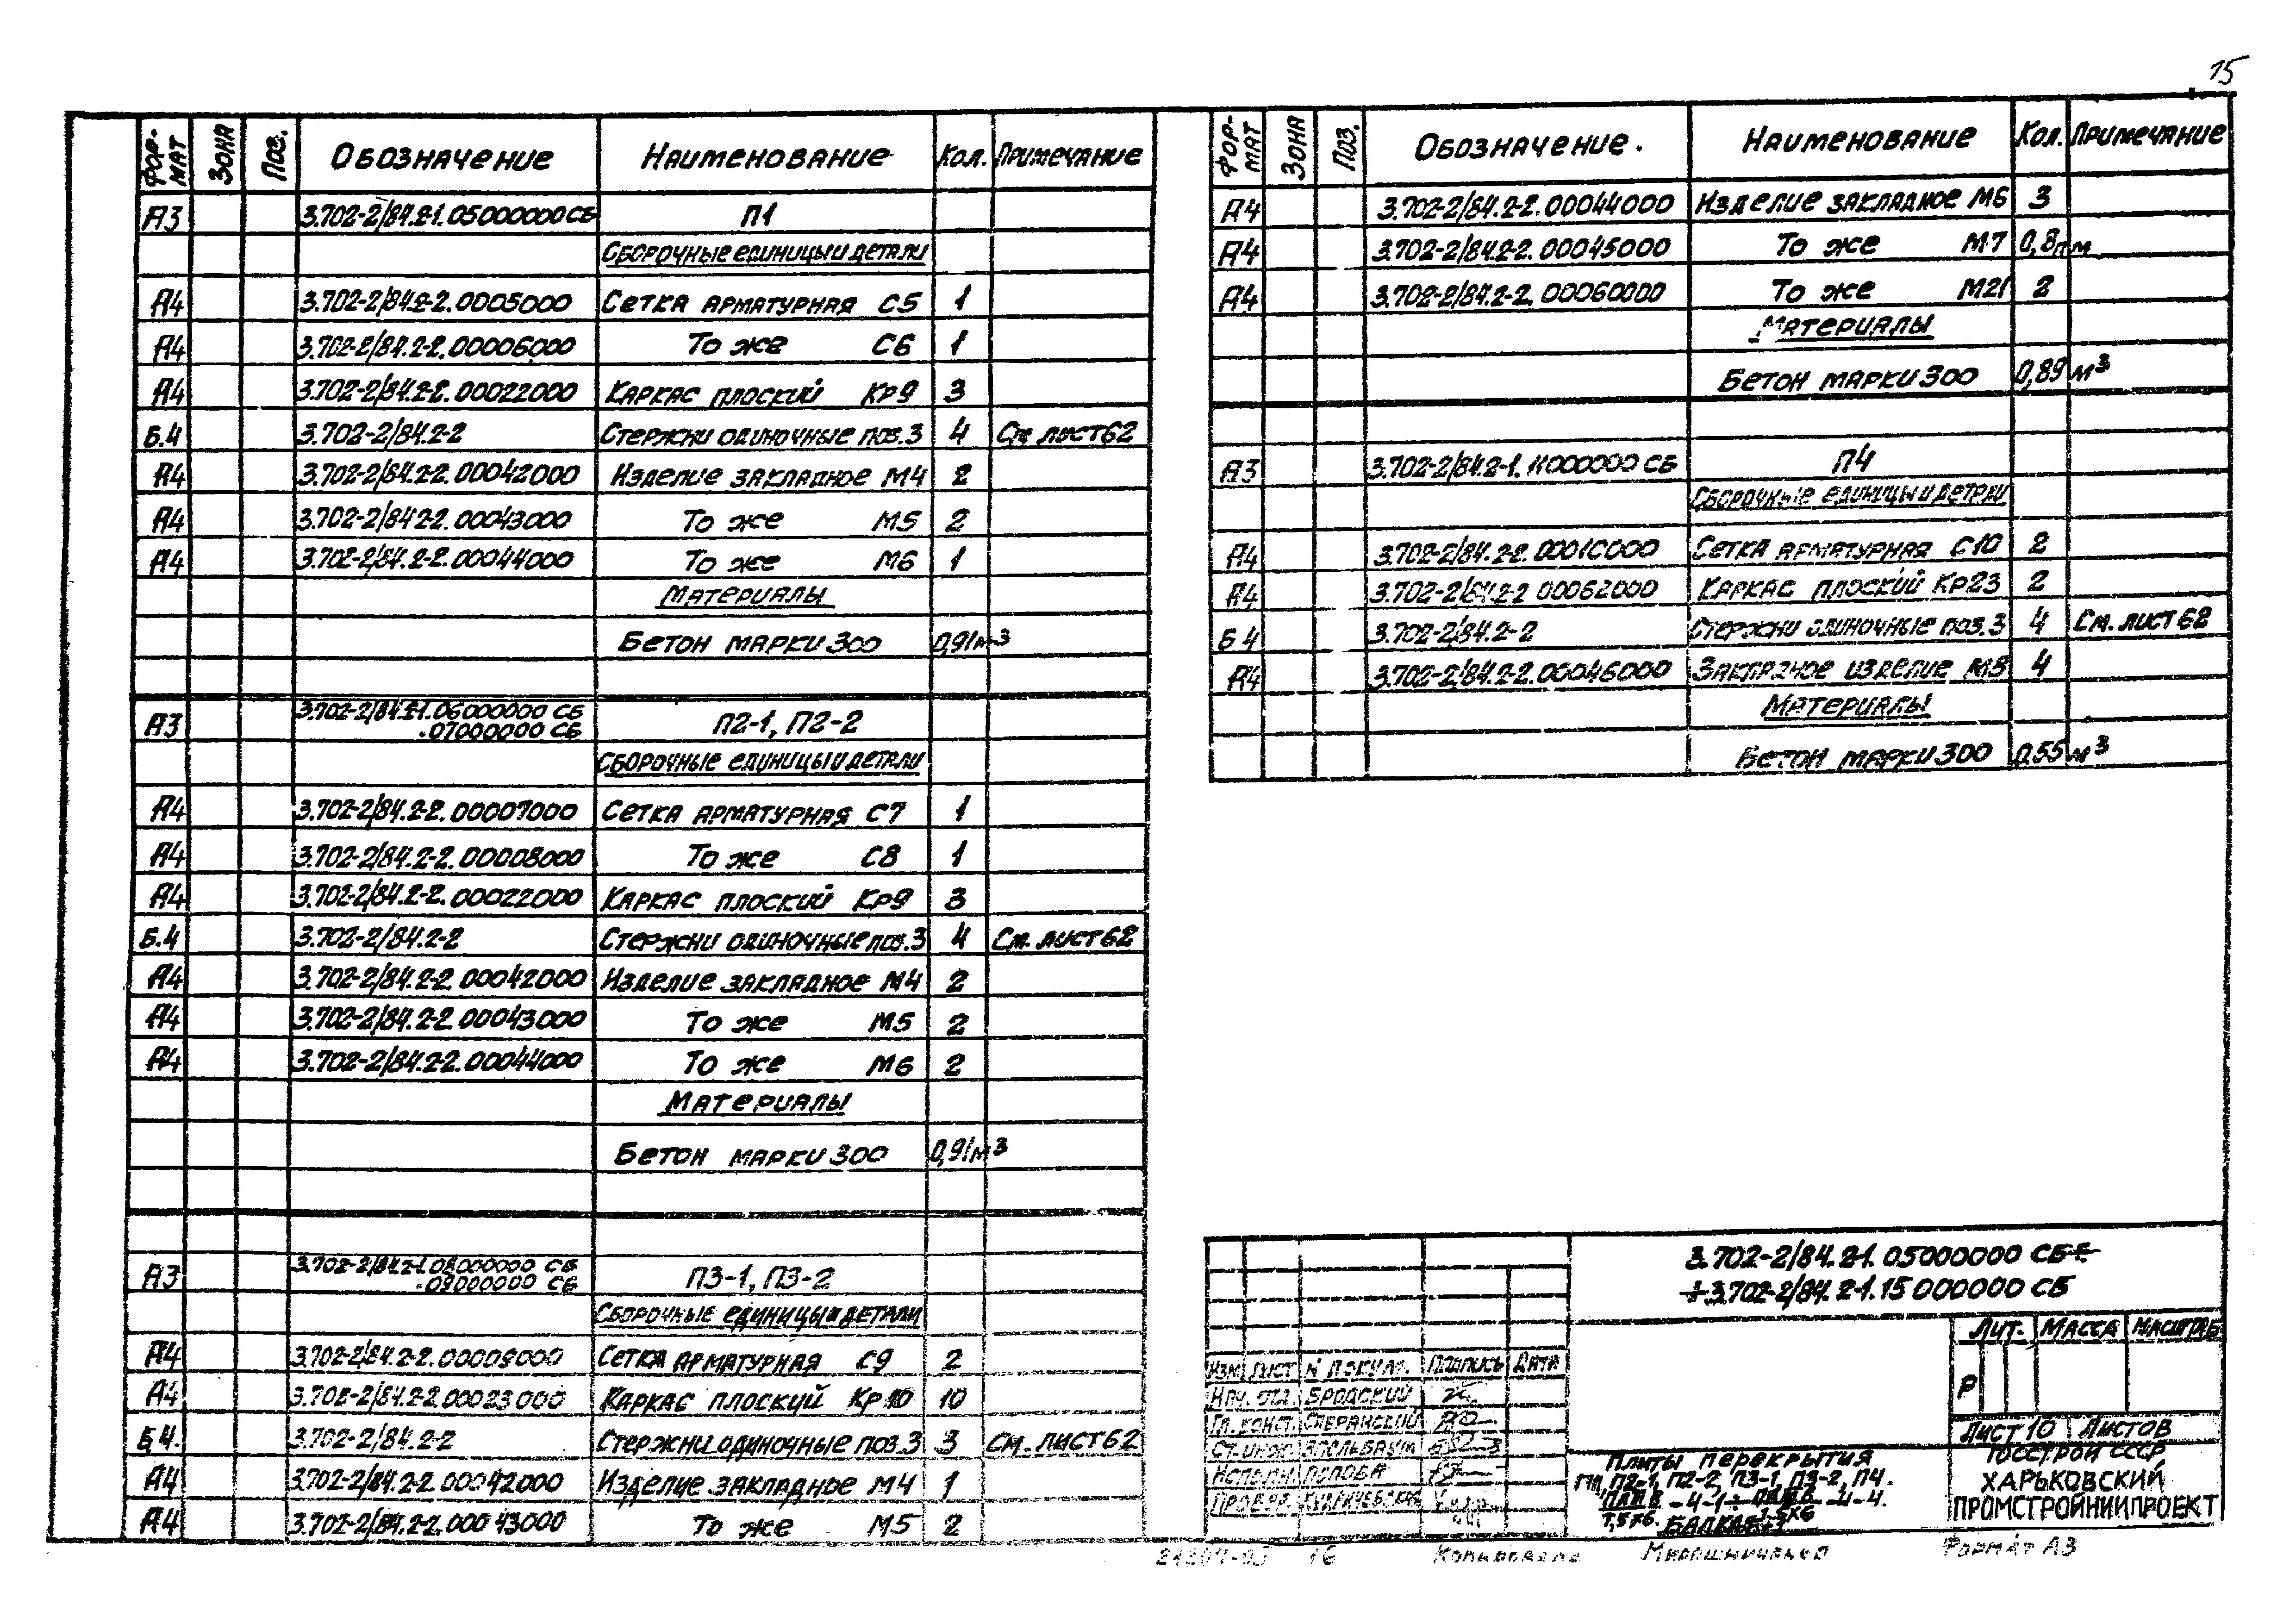 15
ФОР-МАТ ЗОНА Поз. Обозначение Наименование Кол. Примечание
А3 3.702-2/84.2-1.05000000СБ П1
Сборочные единицы и детали
А4 3.702-2/84.2-2.0005000 Сетка арматурная С5 1
А4 3.702-2/84.2-2.00006000 То же С6 1
А4 3.702-2/84.2-2.00022000 Каркас плоский КР9 3
Б.4 3.702-2/84.2-2 Стержни одиночные поз.3 4 См. лист 62
А4 3.702-2/84.2-2.00042000 Изделие закладное М4 2
А4 3.702-2/84.2-2.00043000 То же М5 2
А4 3.702-2/84.2-2.00044000 То же М6 1
Материалы
Бетон марки 300 0,91м³
А3 3.702-2/84.2-1.06000000 СБ
.07000000 СБ П2-1, П2-2
Сборочные единицы и детали
А4 3.702-2/84.2-2.00007000 Сетка арматурная С7 1
А4 3.702-2/84.2-2.00008000 То же С8 1
А4 3.702-2/84.2-2.00022000 Каркас плоский Кр9 3
Б.4 3.702-2/84.2-2 Стержни одиночные поз.3 4 См. лист 62
А4 3.702-2/84.2-2.00042000 Изделие закладное М4 2
А4 3.702-2/84.2-2.00043000 То же М5 2
А4 3.702-2/84.2-2.00044000 То же М6 2
Материалы
Бетон марки 300 0,91м³
А3 3.702-2/84.2-1.08000000 СБ
.09000000 СБ П3-1, П3-2
Сборочные единицы и детали
А4 3.702-2/84.2-2.00009000 Сетка арматурная С9 2
А4 3.702-2/84.2-2.00023000 Каркас плоский Кр10 10
Б4. 3.702-2/84.2-2 Стержни одиночные поз.3 3 См. лист 62
А4 3.702-2/84.2-2.00042000 Изделие закладное М4 1
А4 3.702-2/84.2-2.00043000 То же М5 2
ФОР-МАТ ЗОНА Поз. Обозначение. Наименование Кол. Примечание
А4 3.702-2/84.2-2.00044000 Изделие закладное М6 3
А4 3.702-2/84.2-2.00045000 То же М7 0,8п.м
А4 3.702-2/84.2-2.00060000 То же М21 2
Материалы
Бетон марки 300 0,89 м³
А3 3.702-2/84.2-1.11000000 СБ П4
Сборочные единицы и детали
А4 3.702-2/84.2-2.00010000 Сетка арматурная С10 2
А4 3.702-2/84.2-2 00062000 Каркас плоский Кр23 2
Б4 3.702-2/84.2-2 Стержни одиночные поз.3 4 См. лист 62
А4 3.702-2/84.2-2.00046000 Закладное изделие М8 4
Материалы
Бетон марки 300 0,55 м³
3.702-2/84.2-1.05000000 СБ÷
÷3.702-2/84.2-1.15000000 СБ
Лит. Масса Масштаб
Р
Лист 10 Листов
Изм Лист N докум. Подпись Дата
Нач. отд. Бродский
Гл. конст. Савранский
Ст. инж. Эпельбаум
Исполн. Попова
Провер.
Плиты перекрытия
П1, П2-1, П2-2, П3-1, П3-2, П4.
-4-1÷ -4-4.
Госстрой СССР
ХАРЬКОВСКИЙ
ПРОМСТРОЙНИИПРОЕКТ
16 Копировала Мирошниченко Формат А3